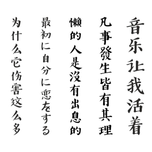 音乐让我活着
凡事發生皆有其理
懒的人是沒有出息的
最初に自分に恋をする
为什么它伤害这么多